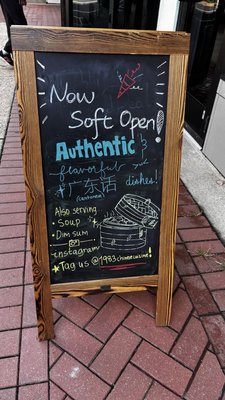 Now
Soft Open!
Authentic &
flavorful
广东话 dishes!
(cantonese)
Also serving
Soup
Dim Sum
instagram
Tag us @1983chinesecuisine!